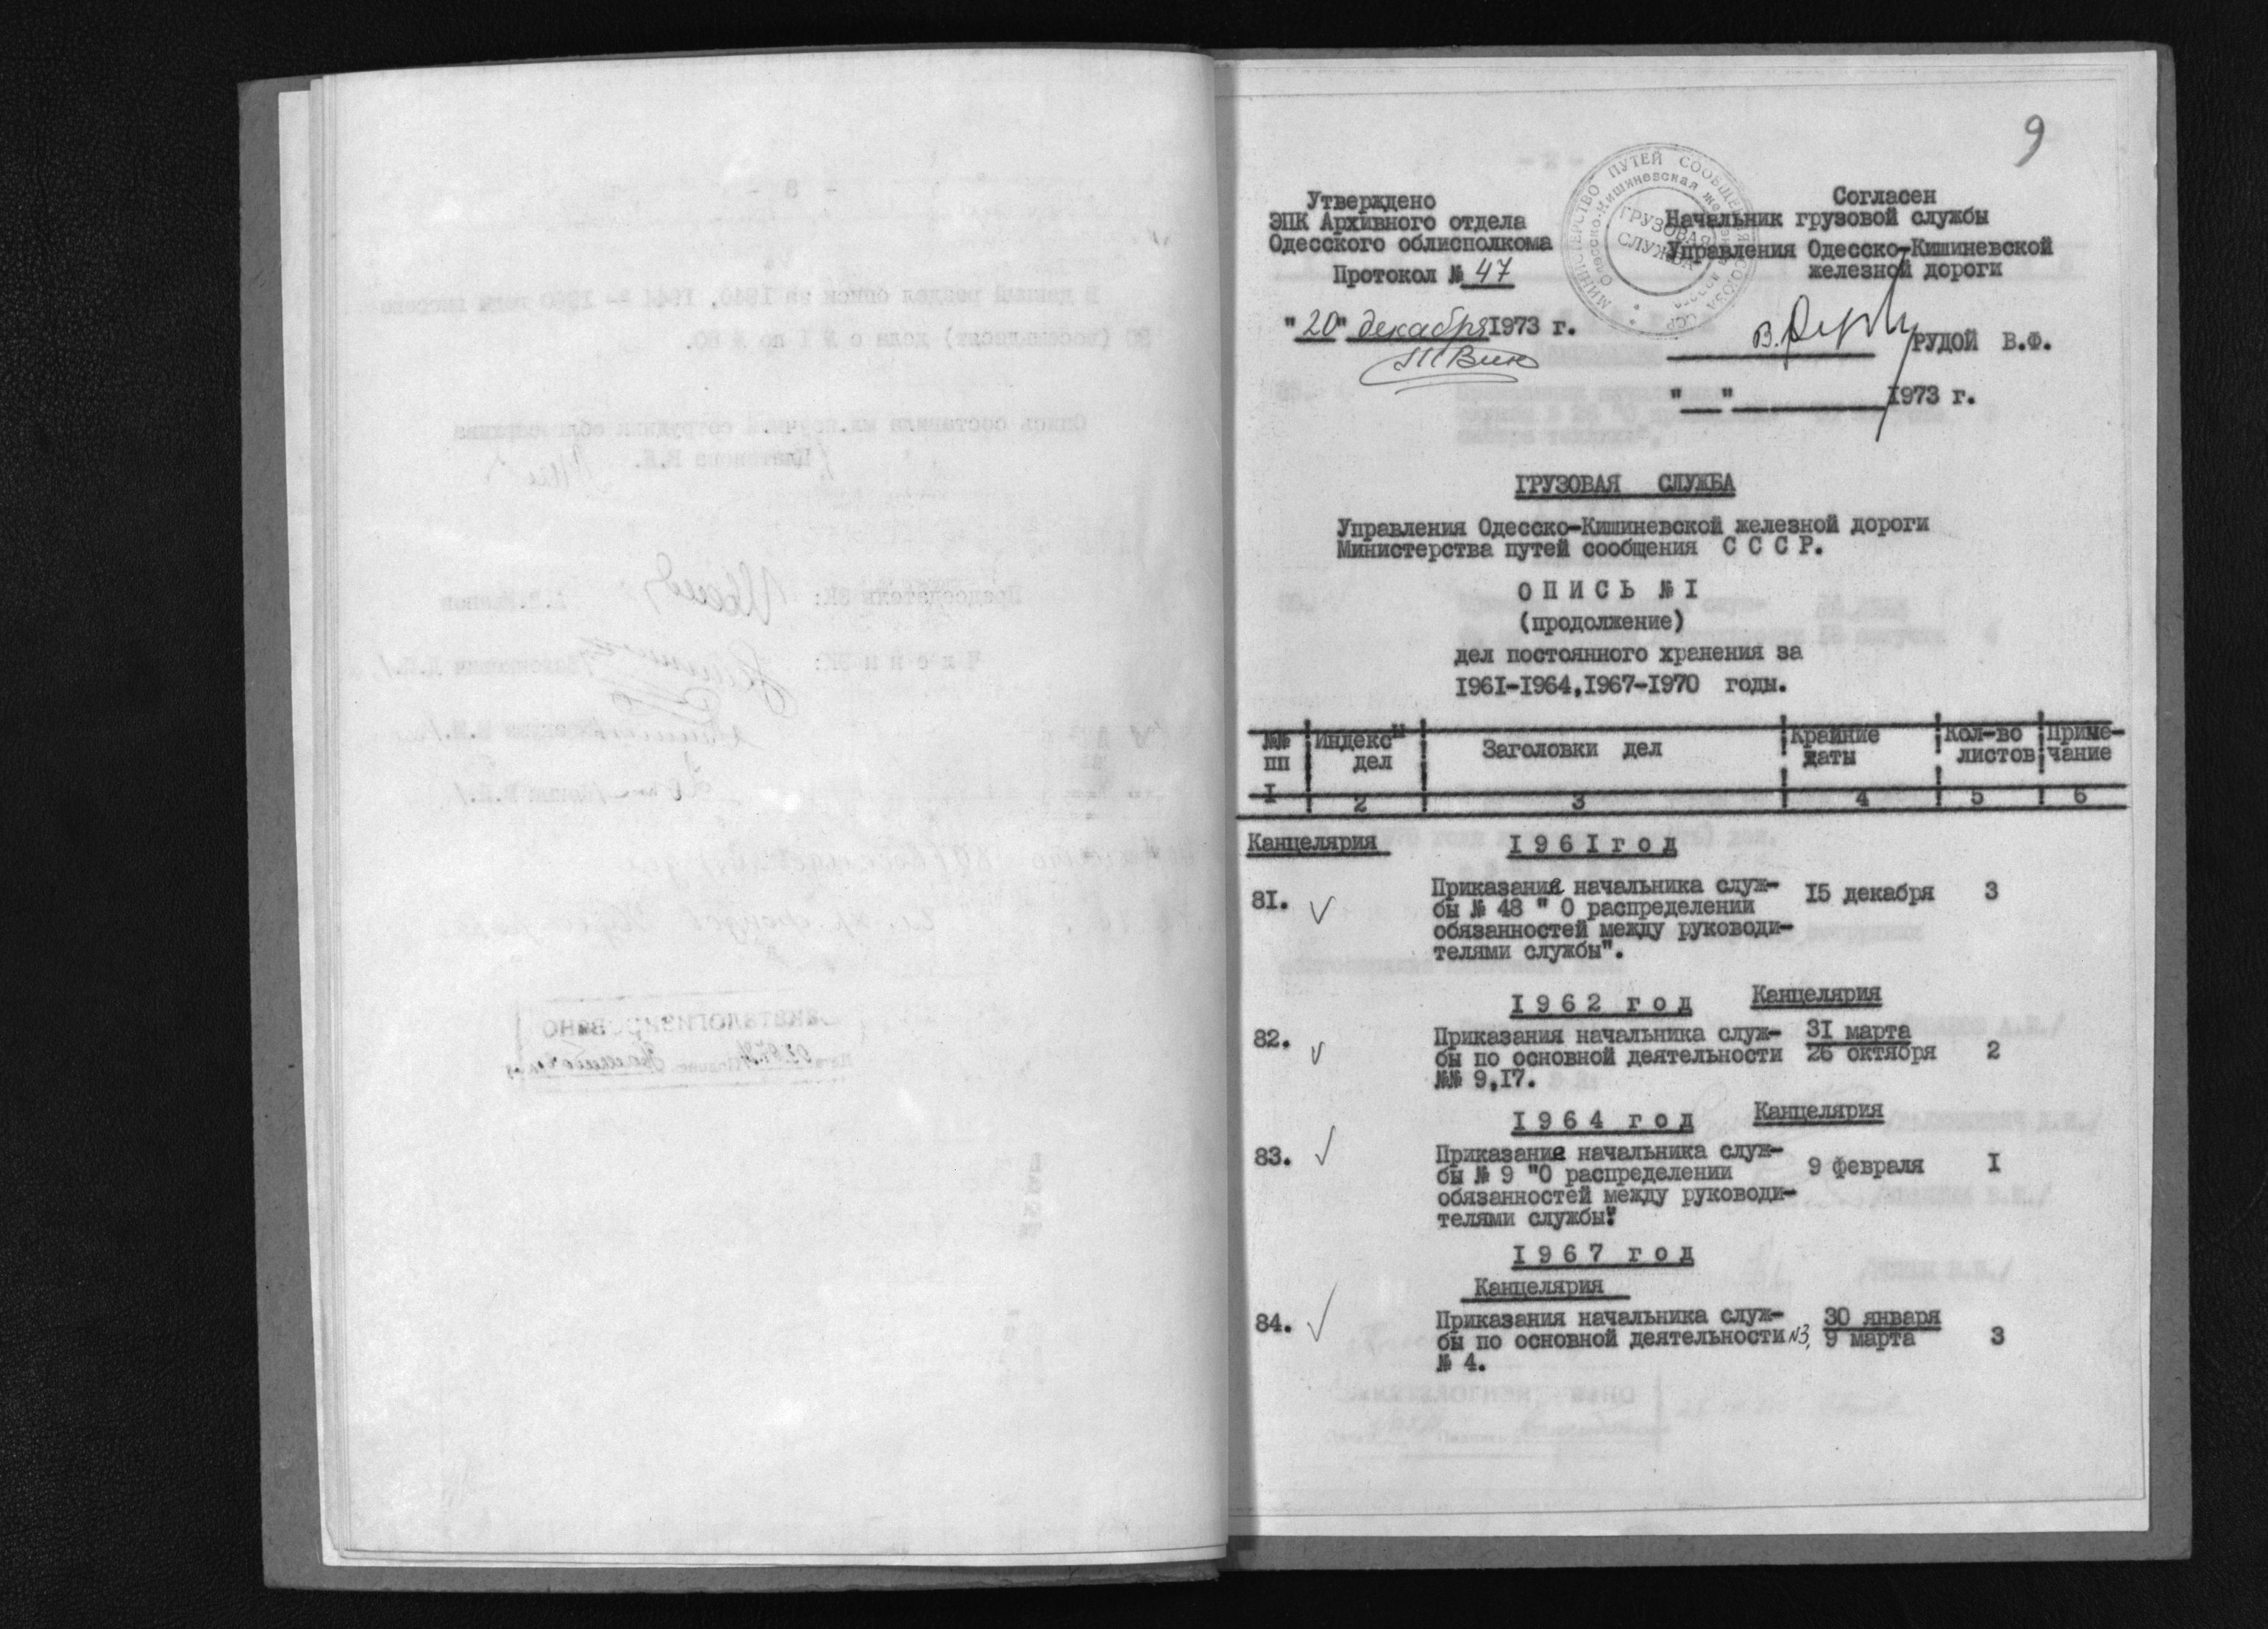 9
МИНИСТЕРСТВО ПУТЕЙ СООБЩЕНИЯ СОЮЗА ССР
Одесско-Кишиневская железная дорога
ГРУЗОВАЯ
СЛУЖБА
Утверждено
ЭПК Архивного отдела
Одесского облисполкома
Протокол № 47
"20" декабря 1973 г.
Согласен
Начальник грузовой службы
Управления Одесско-Кишиневской
железной дороги
РУДОЙ В.Ф.
"__"________1973 г.
ГРУЗОВАЯ СЛУЖБА
Управления Одесско-Кишиневской железной дороги
Министерства путей сообщения С С С Р.
О П И С Ь № I
(продолжение)
дел постоянного хранения за
I96I-I964,I967-I970 годы.
№№ пп | Индексы дел | Заголовки дел | Крайние даты | Кол-во листов | Приме- чание
I | 2 | 3 | 4 | 5 | 6
Канцелярия I 9 6 I г о д
8I. Приказание начальника служ- I5 декабря 3
бы № 48 " О распределении
обязанностей между руководи-
телями службы".
I 9 6 2 г о д Канцелярия
82. Приказания начальника служ- 3I марта
бы по основной деятельности 26 октября 2
№№ 9,I7.
I 9 6 4 г о д Канцелярия
83. Приказание начальника служ-
бы № 9 "О распределении 9 февраля I
обязанностей между руководи-
телями службы".
I 9 6 7 г о д
Канцелярия
84. Приказания начальника служ- 30 января
бы по основной деятельности N3, 9 марта 3
№ 4.